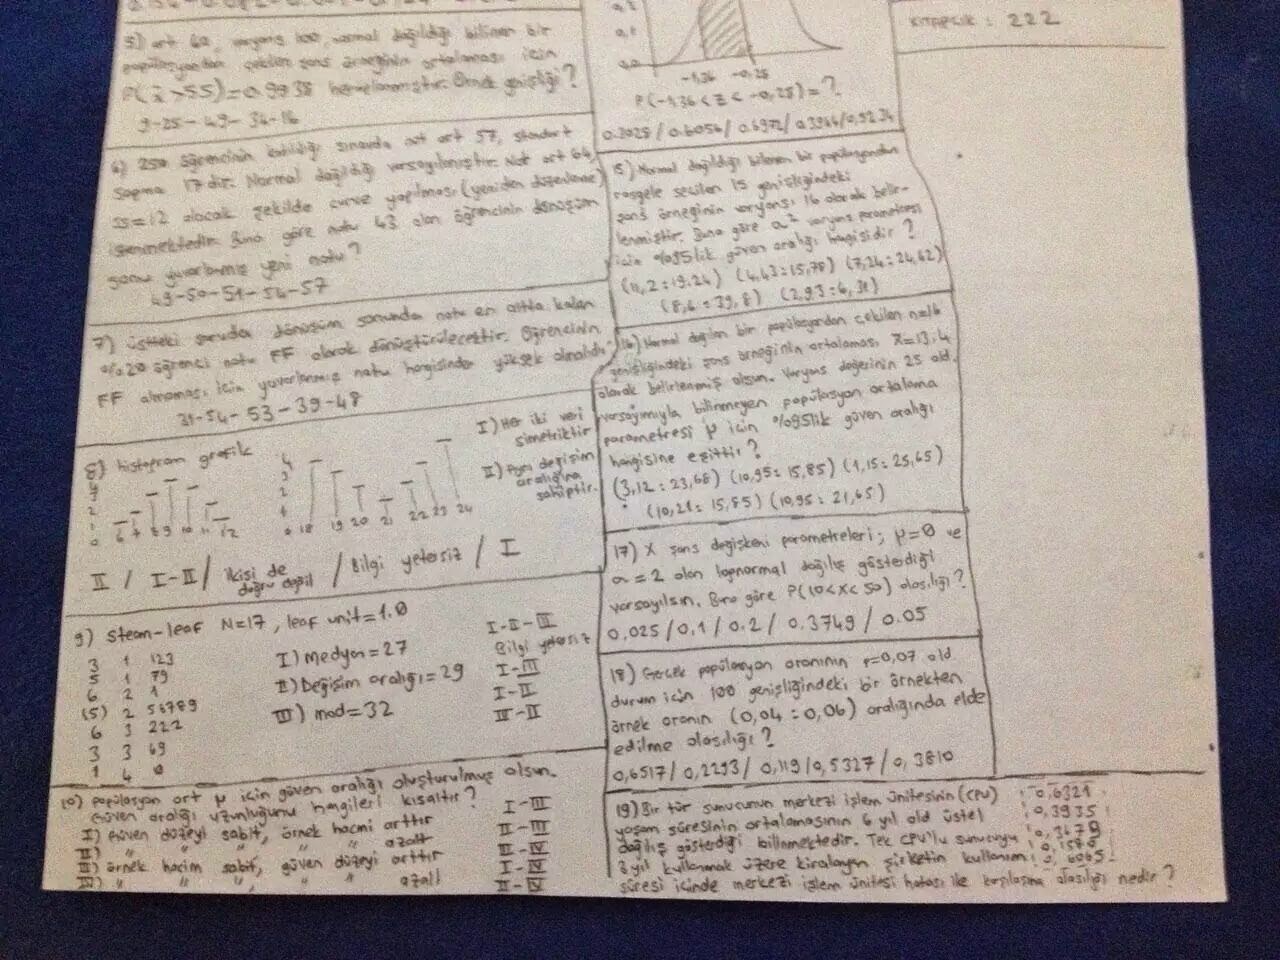 5) ort 60, varyans 100, normal dağıldığı bilinen bir
popülasyondan çekilen şans örneğinin ortalaması için
P(x̄>55)=0.9938 hesaplanmıştır. Örnek genişliği?
9-25-49-36-16
6) 250 öğrencinin katıldığı sınavda not ort 57, standart
sapma 17 dir. Normal dağıldığı varsayılmıştır. Not ort 64,
ss=12 olacak şekilde curve yapılması (yeniden düzenleme)
istenmektedir. Buna göre notu 43 olan öğrencinin dönüşüm
sonu yuvarlanmış yeni notu?
49-50-51-54-57
7) üstteki soruda dönüşüm sonunda notu en altta kalan
%20 öğrenci notu FF olarak dönüştürülecektir. Öğrencinin
FF almaması için yuvarlanmış notu hangisinden yüksek olmalıdır
31-54-53-39-48
8) histogram grafik
4
3
2
1
0
6 7 8 9 10 11 12
18 19 20 21 22 23 24
I) Her iki veri
simetriktir
II) Aynı değişim
aralığına
sahiptir.
II / I-II / ikisi de doğru değil / Bilgi yetersiz / I
9) Steam-leaf N=17, leaf unit=1.0
3 1 123
5 1 79
6 2 1
(5) 2 56789
6 3 222
3 3 69
1 4 0
I) Medyan=27
II) Değişim aralığı=29
III) mod=32
I-II-III
Bilgi yetersiz
I-III
I-II
III-II
10) Popülasyon ort μ için güven aralığı oluşturulmuş olsun.
Güven aralığı uzunluğunu hangileri kısaltır?
I) Güven düzeyi sabit, örnek hacmi arttır
II) " " " " azalt
III) örnek hacim sabit, güven düzeyi arttır
IV) " " " " azalt
I-III
II-III
II-IV
I-IV
II-IV
KİTAPÇIK : 222
0,2
0,1
0,0
-1,36 -0,28
P(-1,36<z<-0,28)=?
0.3028/0.6056/0.6972/0.3966/0,9234
15) Normal dağıldığı bilinen bir popülasyondan
rasgele seçilen 15 genişliğindeki
şans örneğinin varyansı 16 olarak belir-
lenmiştir. Buna göre σ² varyans parametresi
için %95lik güven aralığı hangisidir?
(11,2:19.24) (4,43:15,78) (7,24:24,62)
(8,6:39,8) (2,93:6,31)
16) Normal dağılan bir popülasyondan çekilen n=16
genişliğindeki şans örneğinin ortalaması x̄=13,4
olarak belirlenmiş olsun. Varyans değerinin 25 old.
varsayımıyla bilinmeyen popülasyon ortalama
parametresi μ için %95lik güven aralığı
hangisine eşittir?
(3,12:23,68) (10,95:15,85) (1,15:25,65)
(10,21:15,85) (10,95:21,65)
17) X şans değişkeni parametreleri; μ=0 ve
σ=2 olan lognormal dağılış gösterdiği
varsayılsın. Buna göre P(10<X<50) olasılığı?
0,025/0,1/0.2/0,3749/0.05
18) Gerçek popülasyon oranının r=0,07 old
durum için 100 genişliğindeki bir örnekten
örnek oranın (0,04:0,06) aralığında elde
edilme olasılığı?
0,6517/0,2293/0,119/0,5327/0,3810
19) Bir tür sunucunun merkezi işlem ünitesinin (CPU)
yaşam süresinin ortalamasının 6 yıl old üstel
dağılış gösterdiği bilinmektedir. Tek CPU'lu sunucuyu
3 yıl kullanmak üzere kiralayan şirketin kullanım
süresi içinde merkezi işlem ünitesi hatası ile karşılaşma olasılığı nedir?
0,6321
0,3935
0,3679
0,6065